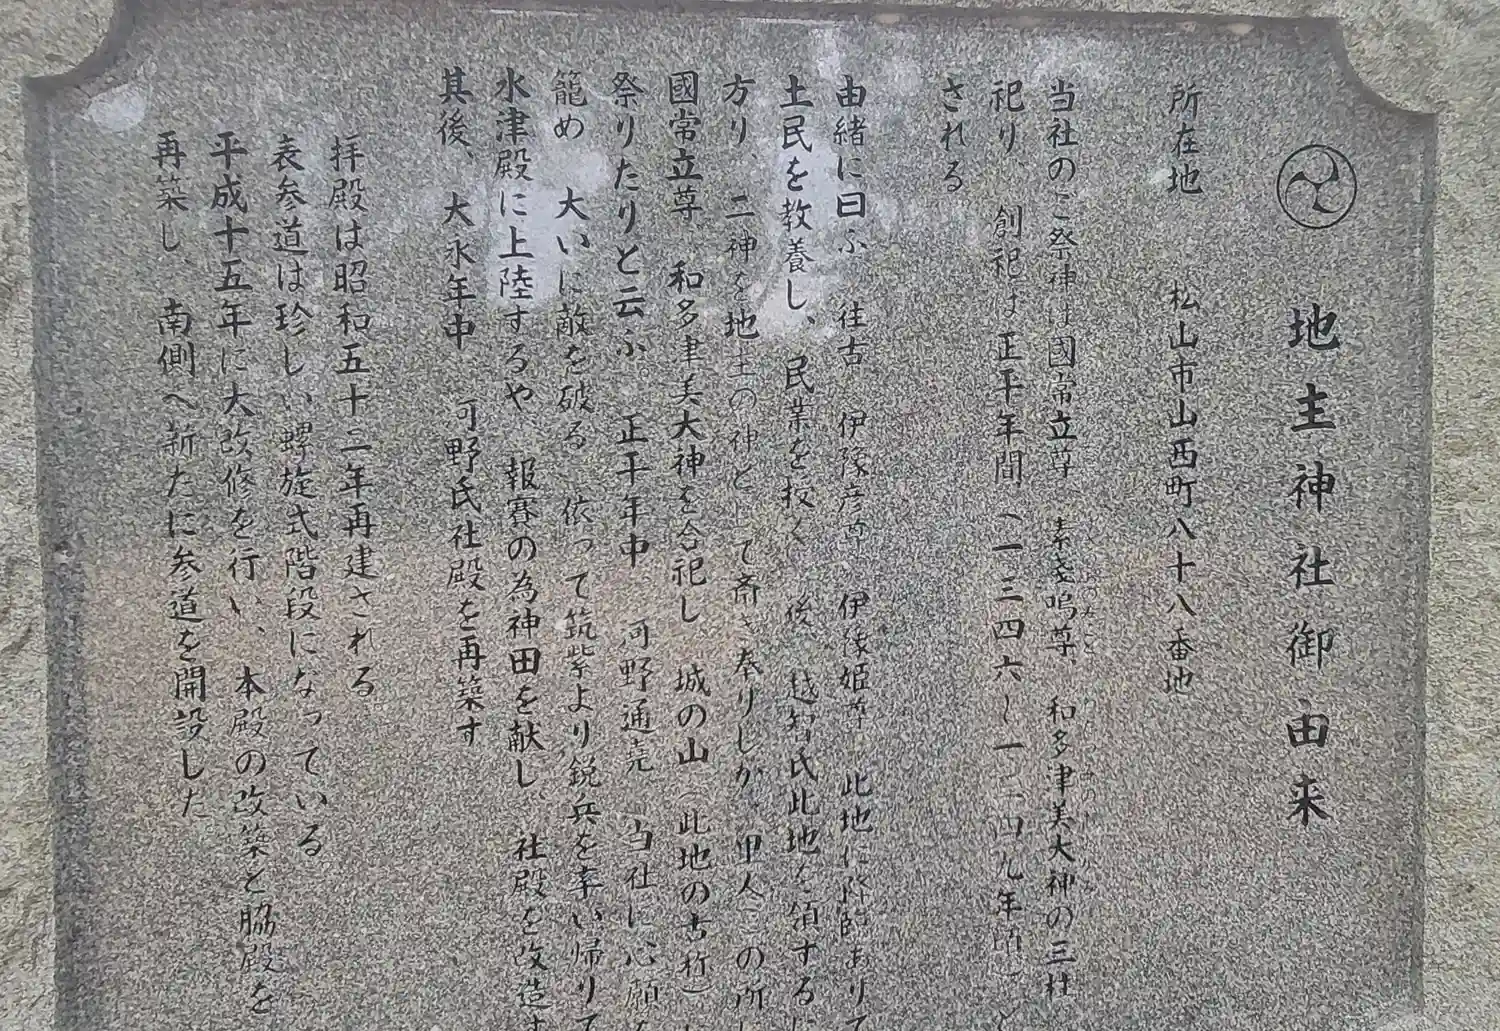 地主神社御由来
所在地　松山市山西町八十八番地
当社のご祭神は國常立尊　素戔嗚尊、和多津美大神の三柱
祀り、創祀は正平年間（一三四六～一三四九年頃）と
される
由緒に曰ふ　往古　伊豫彦尊　伊豫姫尊　此地に降跡ありて
土民を教養し、民業を扱く　後　越智氏此地を領するに
方り、二神を地主の神として斎き奉りしが、里人この所
國常立尊、和多津美大神を合祀し　城の山（此地の古称）に
祭りたりと云ふ　正平年中　河野通堯　当社に心願
籠め　大いに敵を破る　依って筑紫より鋭兵を率い帰りて
水津殿に上陸するや　報賽の為神田を献し、社殿を改造す
其後、大永年中　河野氏社殿を再築す
拝殿は昭和五十二年再建される
表参道は珍しい螺旋式階段になっている
平成十五年に大改修を行い、本殿の改築と脇殿を
再築し、南側へ新たに参道を開設した